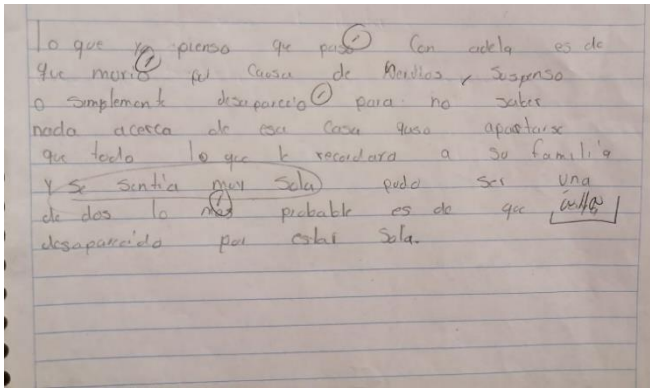 lo que yo pienso que paso con adela es de
que murio por causa de Medios y suspenso
o simplemente desaparecio para no saber
nada acerca de esa casa quso apartarse
que todo lo que le recordara a su familia
y se sentia muy sola pudo ser una
de dos lo mas probable es de que
desaparecido por estar sola.